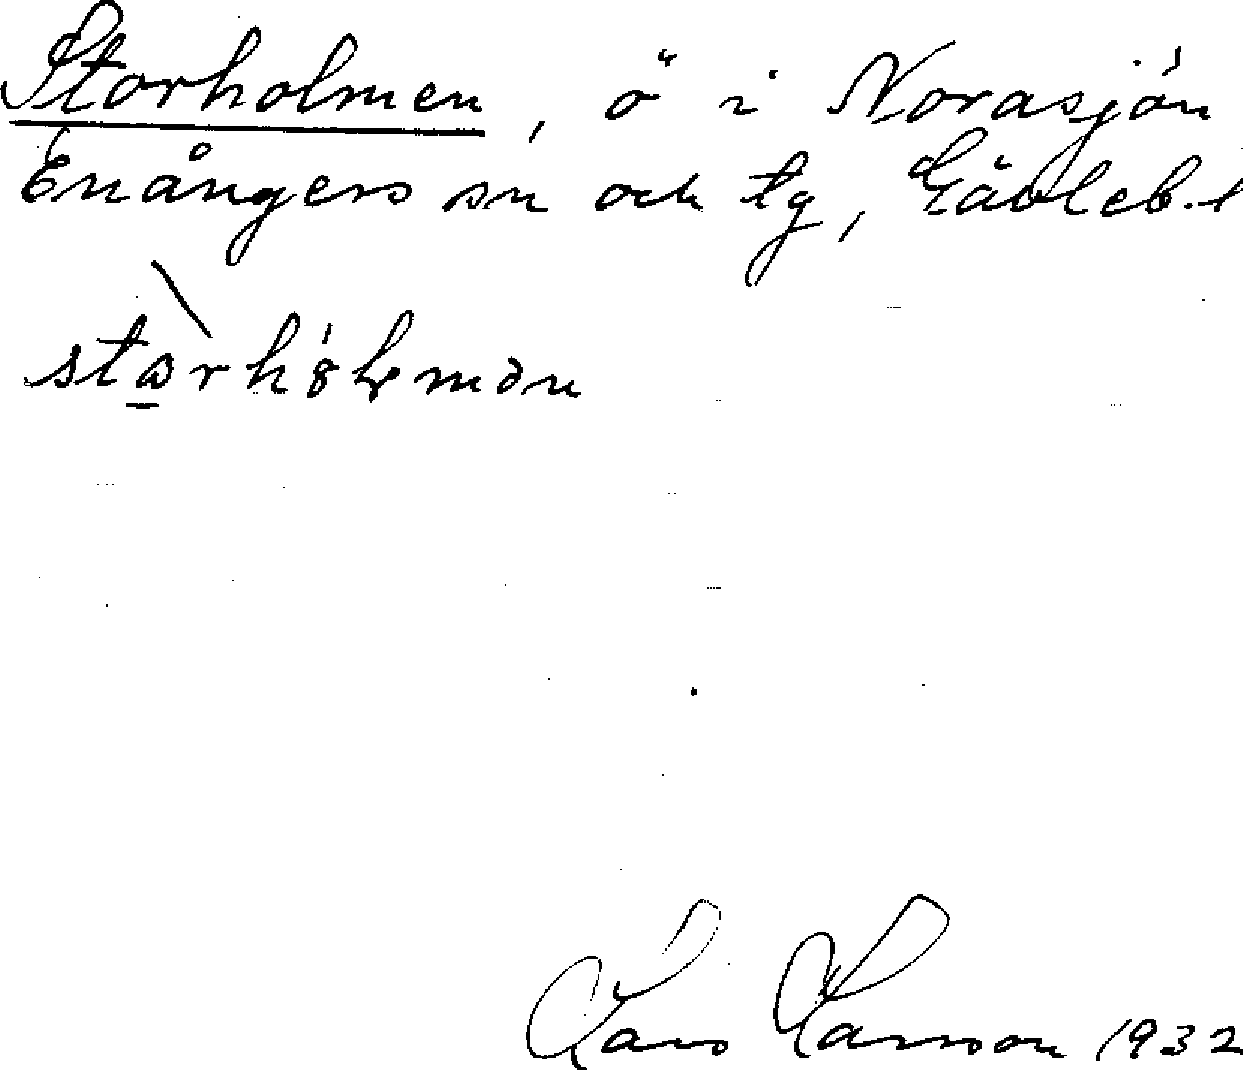 Storholmen, ö i Norasjön
Enångers sn och tg, Gävleb. l
Lars Larsson 1932